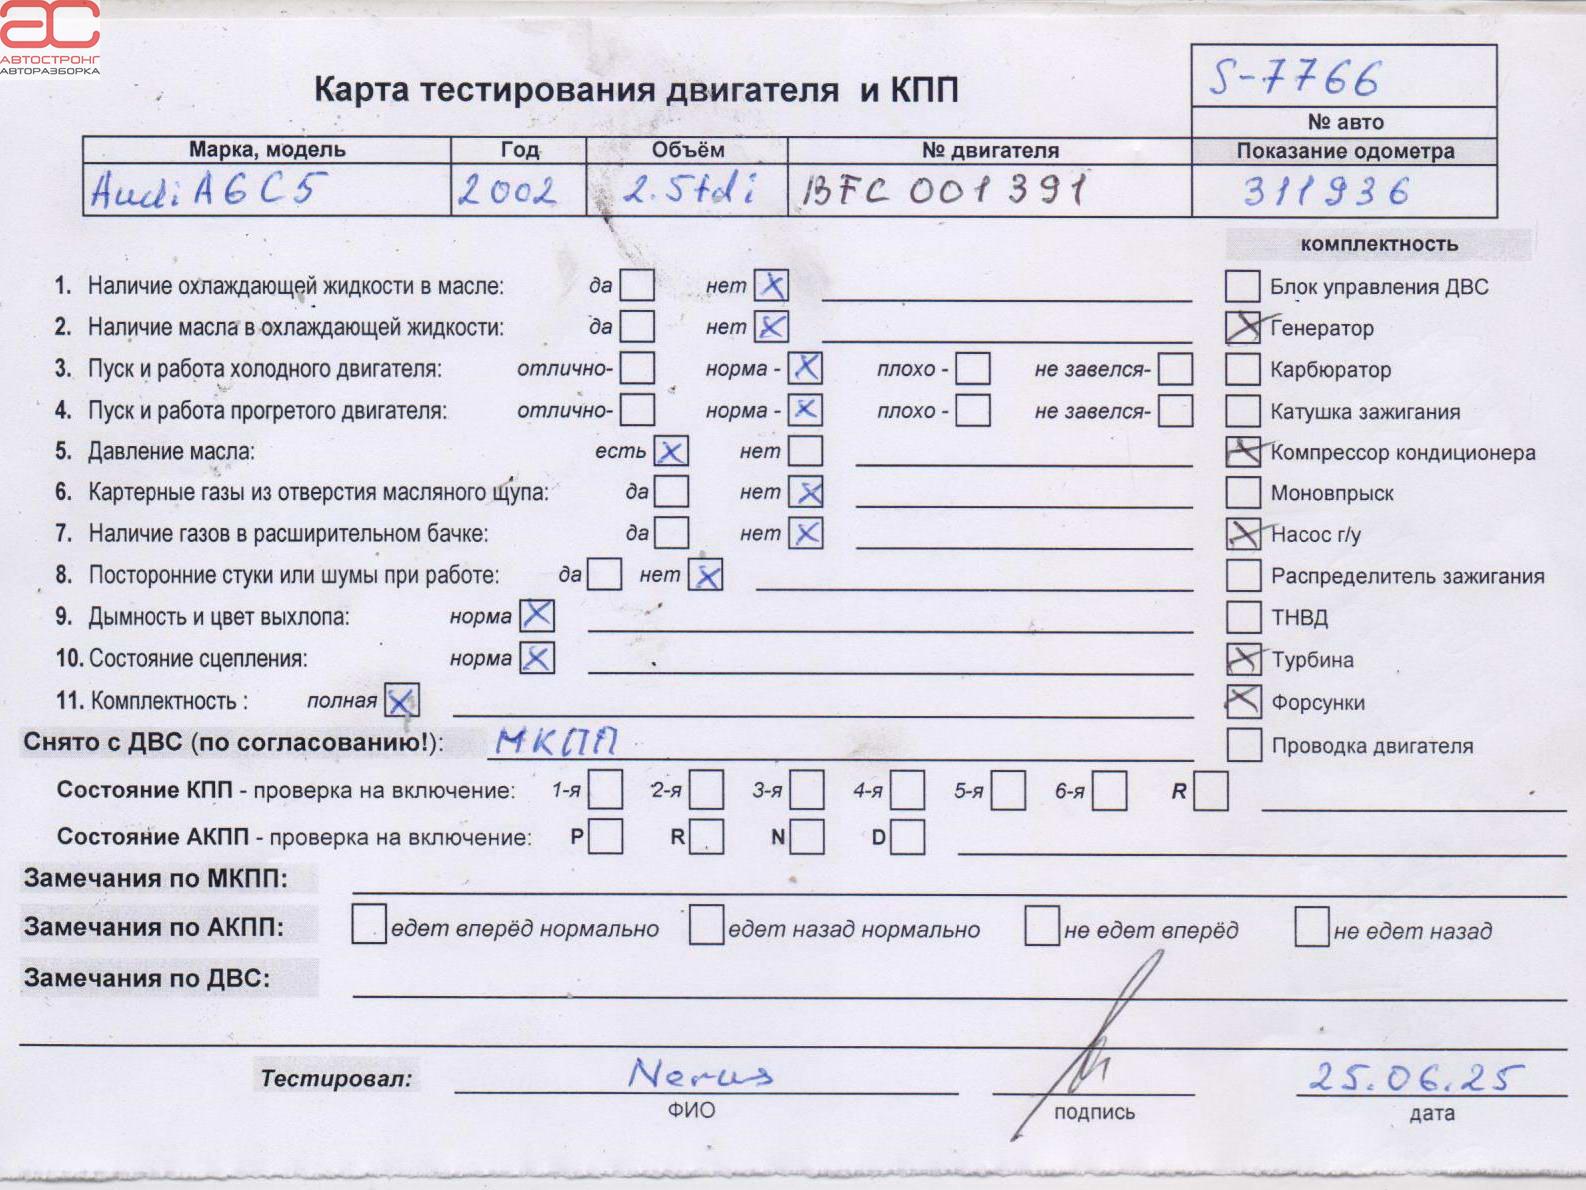 АС
АВТОСТРОНГ
АВТОРАЗБОРКА
Карта тестирования двигателя и КПП
S-7766
№ авто
Марка, модель Год Объём № двигателя Показание одометра
Audi A6 C5 2002 2.5tdi BFC 001391 311936
комплектность
1. Наличие охлаждающей жидкости в масле: да нет X Блок управления ДВС
2. Наличие масла в охлаждающей жидкости: да нет X X Генератор
3. Пуск и работа холодного двигателя: отлично- норма - X плохо - не завелся- Карбюратор
4. Пуск и работа прогретого двигателя: отлично- норма - X плохо - не завелся- Катушка зажигания
5. Давление масла: есть X нет X Компрессор кондиционера
6. Картерные газы из отверстия масляного щупа: да нет X Моновпрыск
7. Наличие газов в расширительном бачке: да нет X X Насос г/у
8. Посторонние стуки или шумы при работе: да нет X Распределитель зажигания
9. Дымность и цвет выхлопа: норма X ТНВД
10. Состояние сцепления: норма X X Турбина
11. Комплектность : полная X X Форсунки
Снято с ДВС (по согласованию!): МКПП Проводка двигателя
Состояние КПП - проверка на включение: 1-я 2-я 3-я 4-я 5-я 6-я R
Состояние АКПП - проверка на включение: P R N D
Замечания по МКПП:
Замечания по АКПП: едет вперёд нормально едет назад нормально не едет вперёд не едет назад
Замечания по ДВС:
Тестировал: 25.06.25
ФИО подпись дата